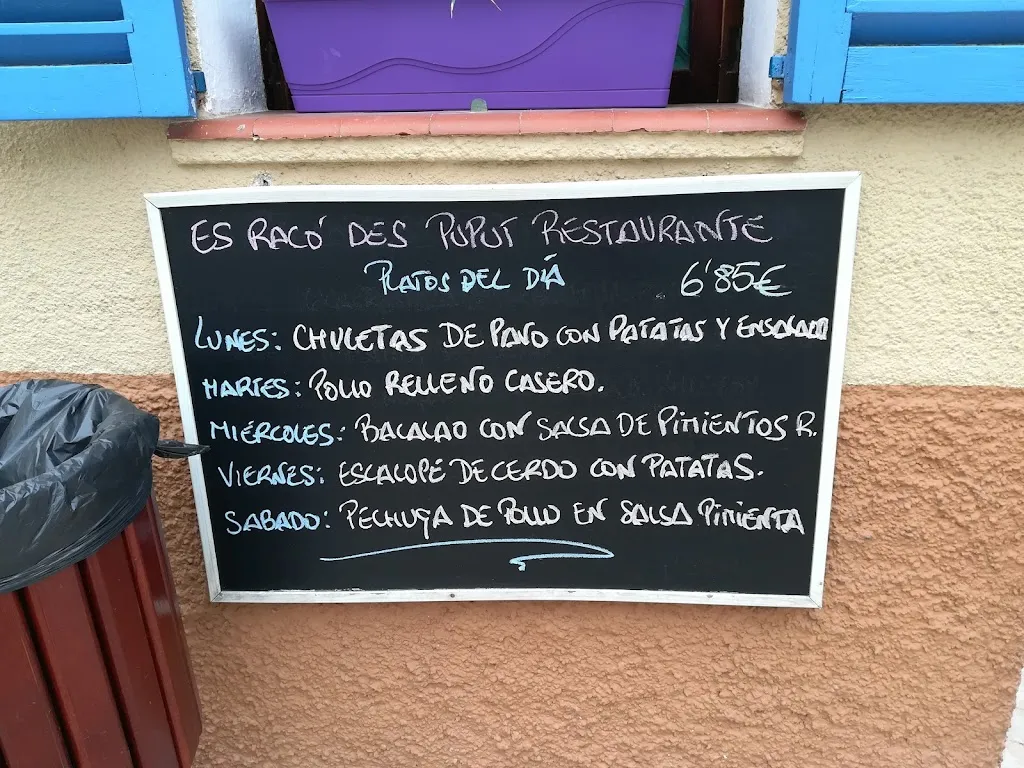 ES RACÓ DES PUPUT RESTAURANTE
PLATOS DEL DÍA 6'85€
LUNES: CHULETAS DE PAVO CON PATATAS Y ENSALADA
MARTES: POLLO RELLENO CASERO.
MIÉRCOLES: BACALAO CON SALSA DE PIMIENTOS R.
VIERNES: ESCALOPE DE CERDO CON PATATAS.
SABADO: PECHUGA DE POLLO EN SALSA PIMIENTA